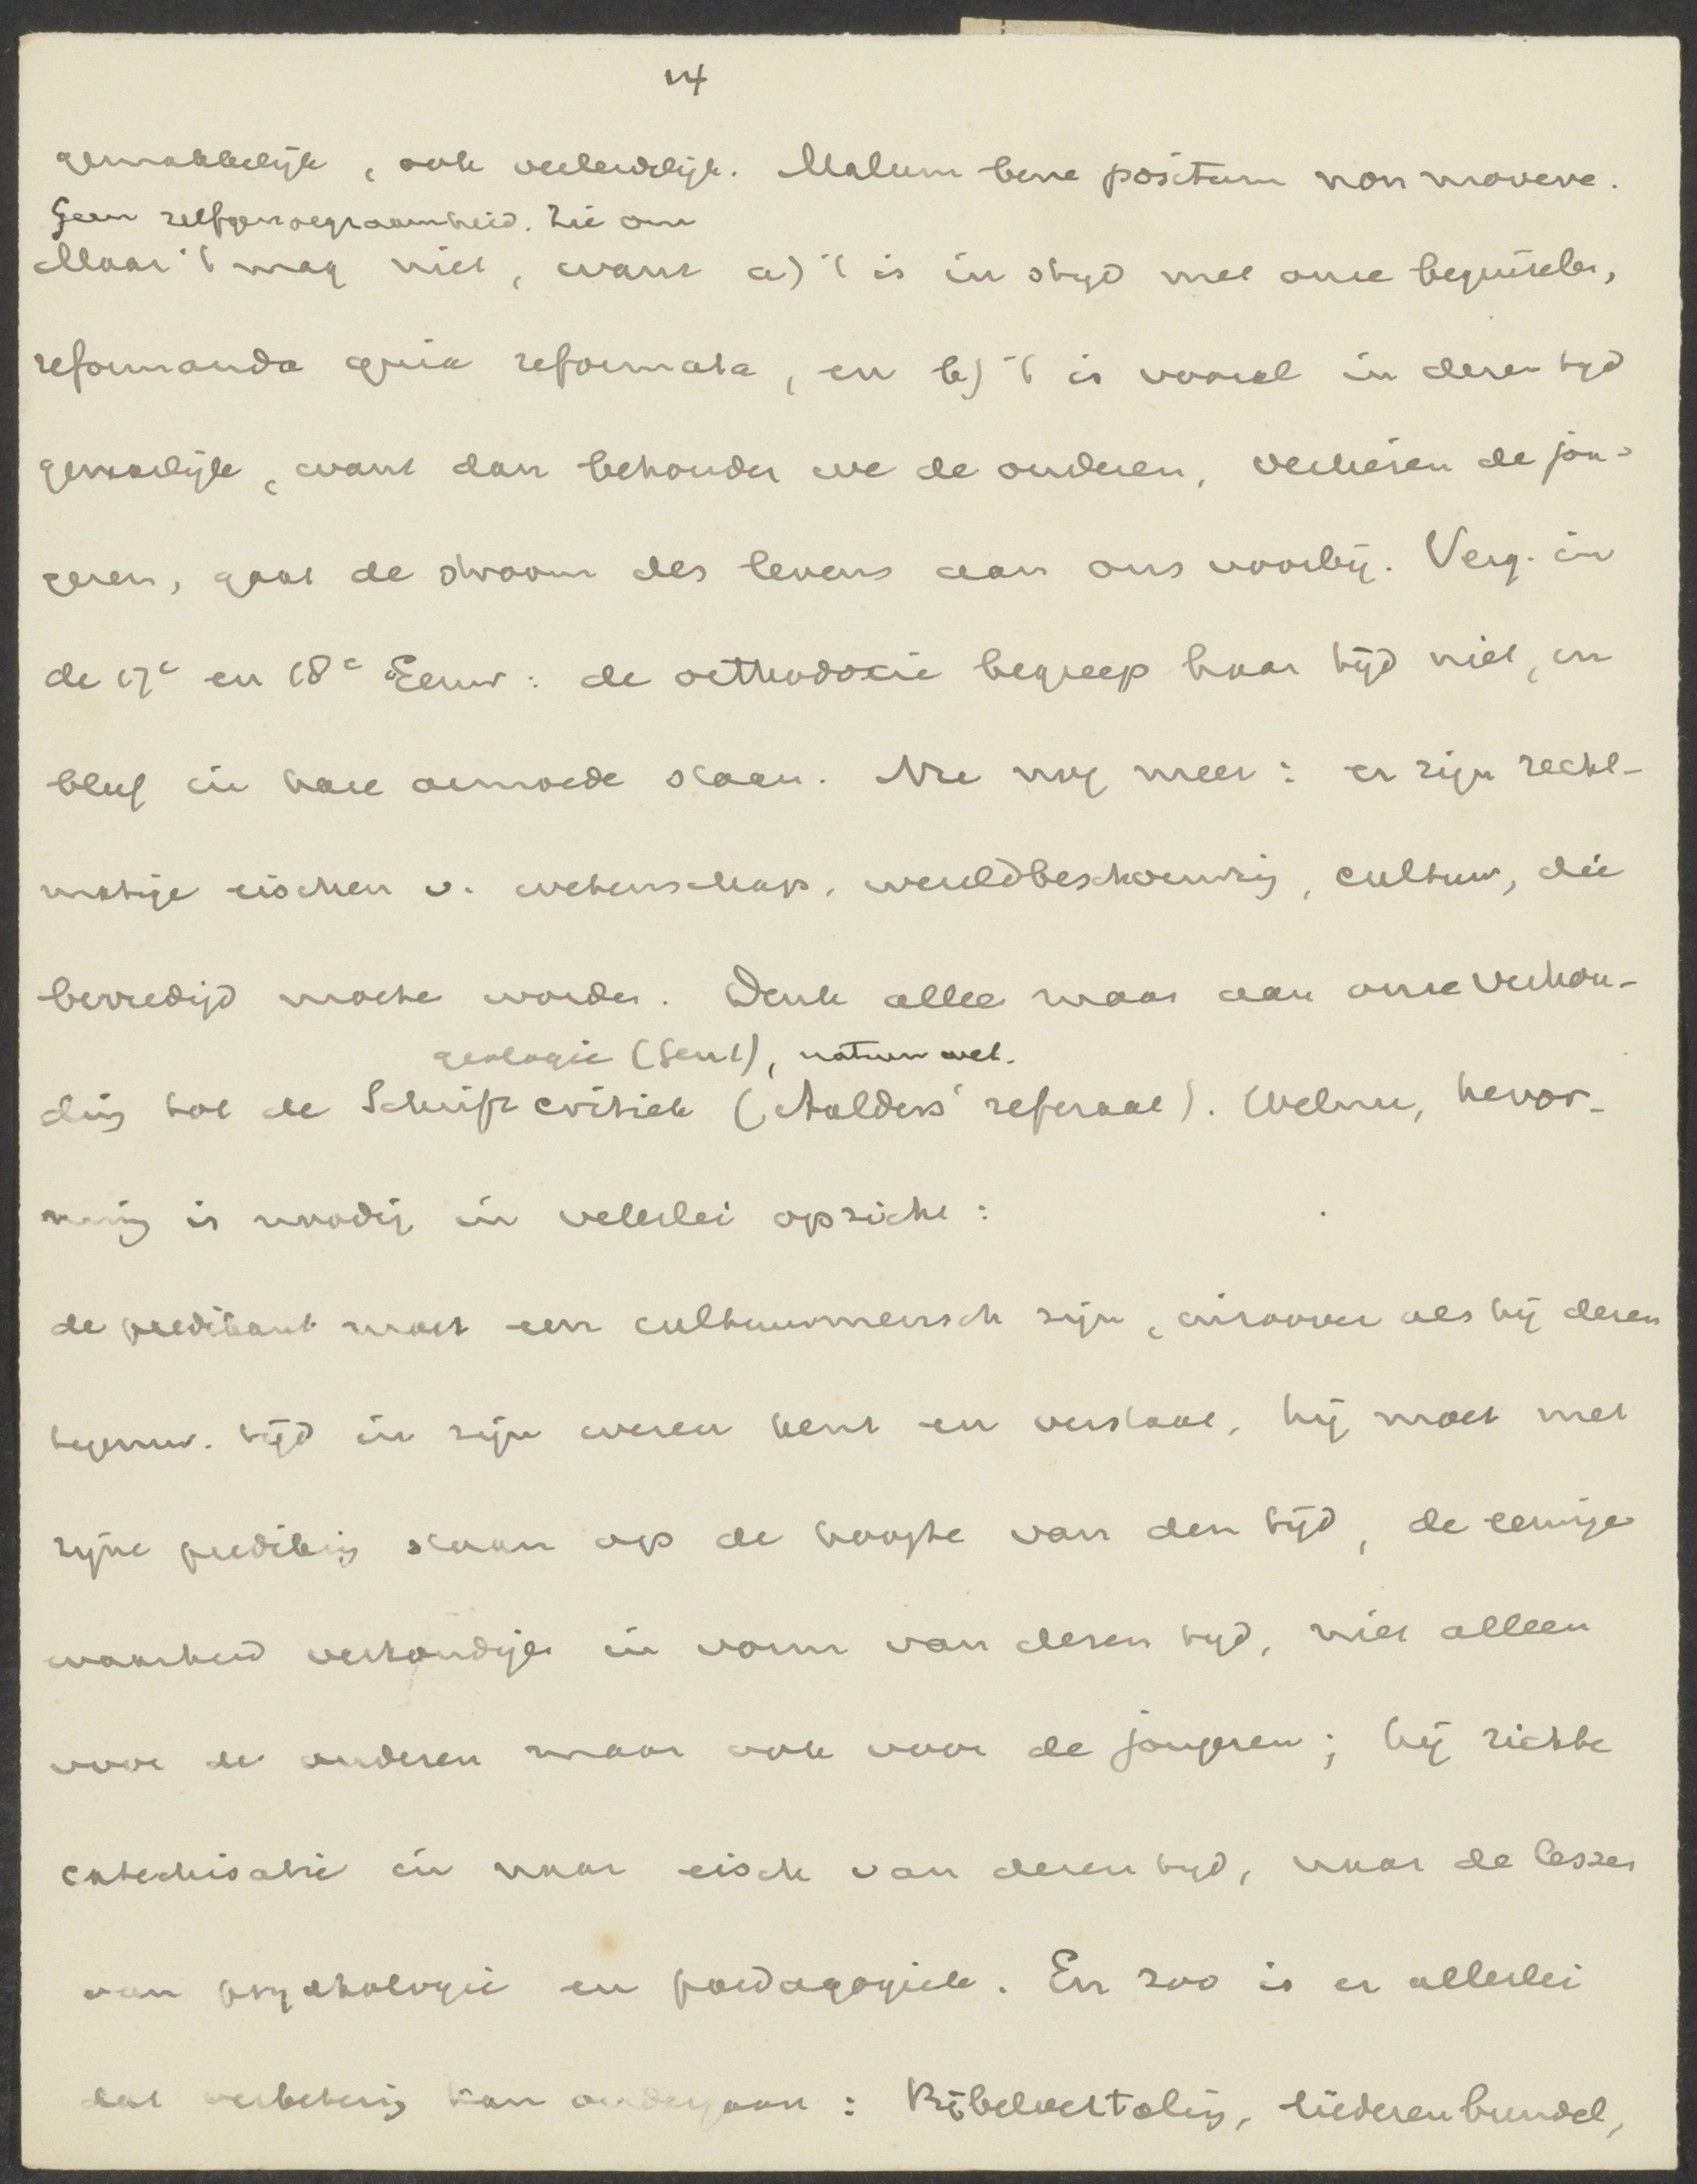 14
gemakkelijk, ook verleidelijk. Malum bene positum non movere.
Geen zelfgenoegzaamheid. Zie om
Maar 't mag niet, want a) 't is in strijd met onze beginselen,
reformanda quia reformata, en b) 't is vooral in dezen tijd
gevaarlijk, want dan behouden we de ouderen, verliezen de jon-
geren, gaat de stroom des levens aan ons voorbij. Verg. in
de 17e en 18e Eeuw: de orthodoxie begreep haar tijd niet, en
bleef in hare armoede staan. Nu nog meer: er zijn recht-
matige eischen v. wetenschap, wereldbeschouwing, cultuur, die
bevredigd moeten worden. Denk alleen maar aan onze verhou-
geologie (Gent), natuurwet.
ding tot de Schriftcritiek (Aalders' referaat). Welnu, hervor-
ming is noodig in velerlei opzicht:
de predikant moet een cultuurmensch zijn, inzoover als hij dezen
tegenw. tijd in zijn wezen kent en verstaat, hij moet met
zijne prediking staan op de hoogte van den tijd, de eeuwige
waarheid verkondigen in vorm van dezen tijd, niet alleen
voor de ouderen maar ook voor de jongeren; hij richte
catechisatie in naar eisch van dezen tijd, naar de lessen
van psychologie en paedagogiek. En zoo is er allerlei
dat verbetering kan ondergaan: Bijbelvertaling, liederenbundel,